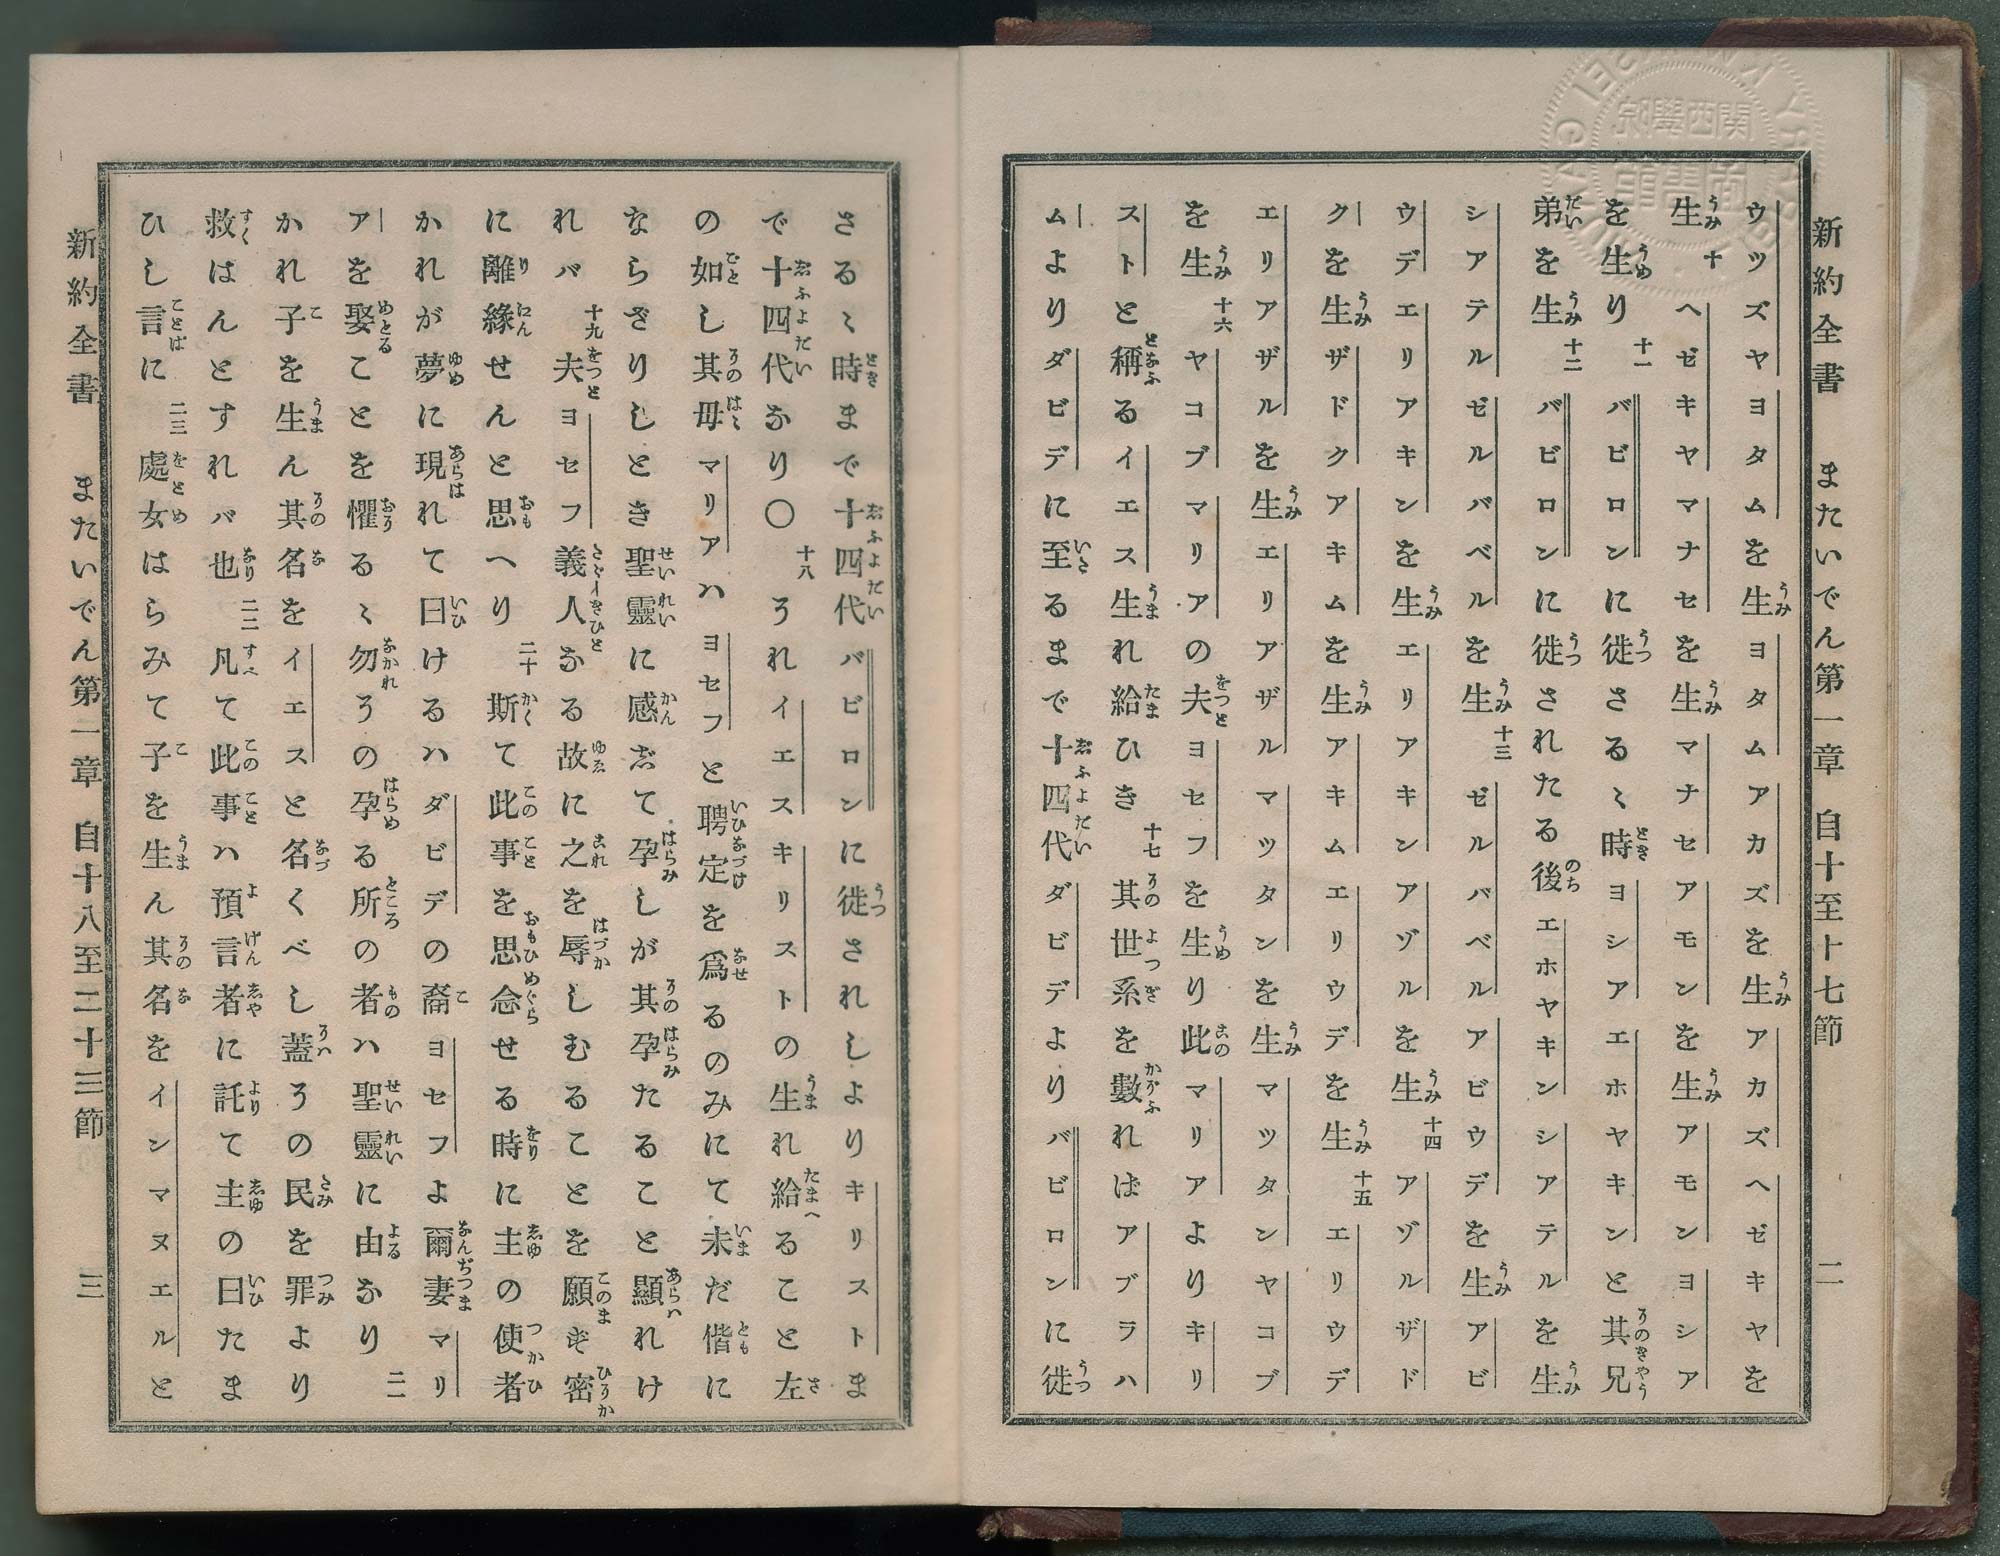 新約全書 またいでん第一章 自十至十七節 二
ウツズヤヨタムを生ヨタムアカズを生アカズヘゼキヤを
生 十 ヘゼキヤマナセを生マナセアモンを生アモンヨシア
を生り 十一 バビロンに徙さるゝ時ヨシアエホヤキンと其兄
弟を生 十二 バビロンに徙されたる後エホヤキンシアテルを生
シアテルゼルバベルを生 十三 ゼルバベルアビウデを生アビ
ウデエリアキンを生エリアキンアゾルを生 十四 アゾルザド
クを生ザドクアキムを生アキムエリウデを生 十五 エリウデ
エリアザルを生エリアザルマツタンを生マツタンヤコブ
を生 十六 ヤコブマリアの夫ヨセフを生り此マリアよりキリ
ストと稱るイエス生れ給ひき 十七 其世系を數れはアブラハ
ムよりダビデに至るまで十四代ダビデよりバビロンに徙
さるゝ時まで十四代バビロンに徙されしよりキリストま
で十四代なり〇 十八 それイエスキリストの生れ給ること左
の如し其母マリアハヨセフと聘定を爲るのみにて未だ偕に
ならざりしとき聖靈に感じて孕しが其孕たること顯れけ
れバ 十九 夫ヨセフ義人なる故に之を辱しむることを願ず密
に離緣せんと思へり 二十 斯て此事を思念せる時に主の使者
かれが夢に現れて曰けるハダビデの裔ヨセフよ爾妻マリ
アを娶ことを懼るゝ勿その孕る所の者ハ聖靈に由なり 二一
かれ子を生ん其名をイエスと名くべし蓋その民を罪より
救はんとすれバ也 二二 凡て此事ハ預言者に託て主の曰たま
ひし言に 二三 處女はらみて子を生ん其名をインマヌエルと
新約全書 またいでん第一章 自十八至二十三節 三